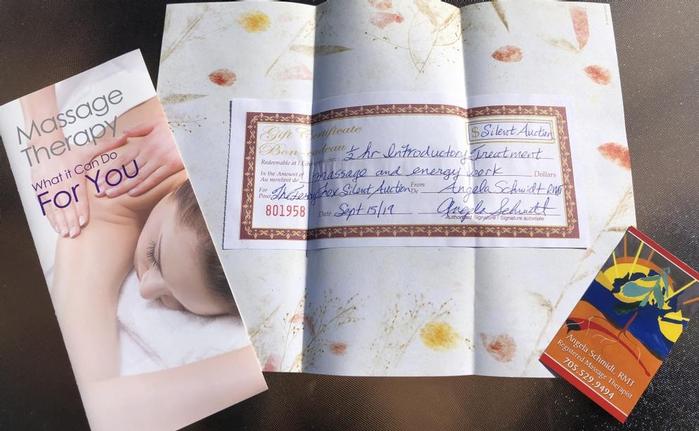 Massage
Therapy
What it Can Do
For You
Gift Certificate
$ Silent Auction
Bon-cadeau
½ hr Introductory Treatment
Redeemable at
In the Amount of
Au montant de
massage and energy work
Dollars
For
Pour
Silent Auction
From
De
Angela Schmidt RMT
801958
Date
Sept 15/19
Angela Schmidt
Authorized Signature / Signature autorisée
Angela Schmidt, RMT
Registered Massage Therapist
705.529.9494